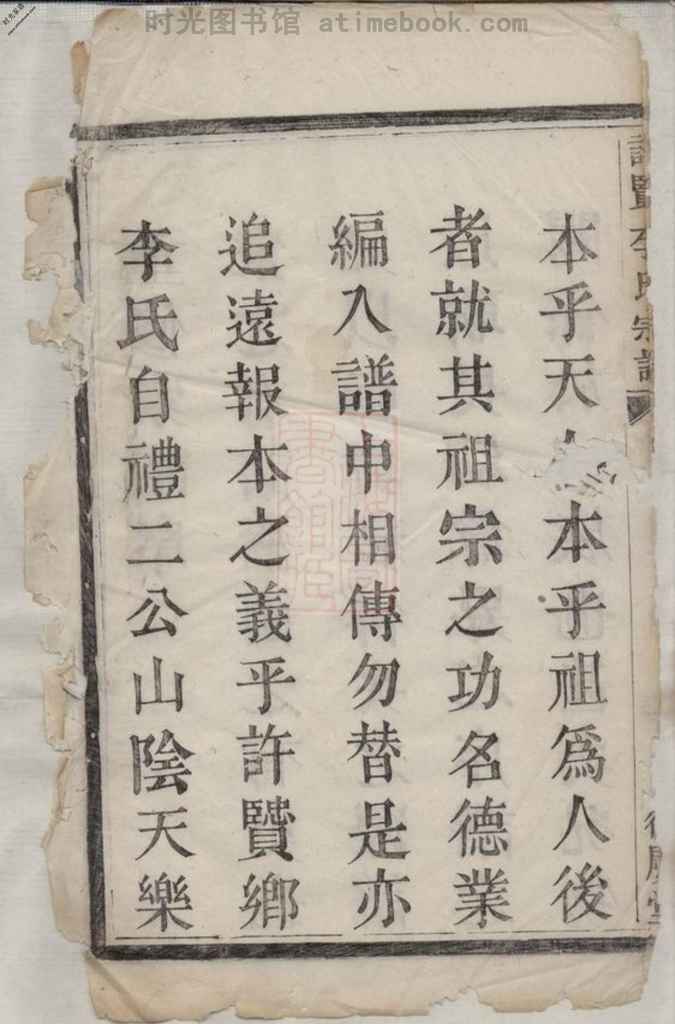 时光图书馆 atimebook.com
本乎天本乎祖爲人後
者就其祖宗之功名德業
編入譜中相傳勿替是亦
追遠報本之義乎許賢鄉
李氏自禮二公山陰天樂
賢李氏宗譜